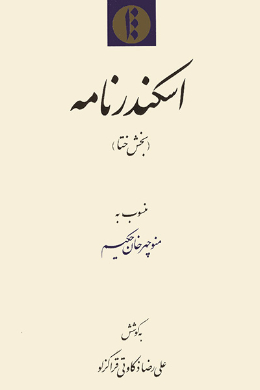 اسکندرنامه
(بخش ختا)
منسوب به
منوچهرخان حکیم
به‌کوشش
علیرضا ذکاوتی قراگزلو